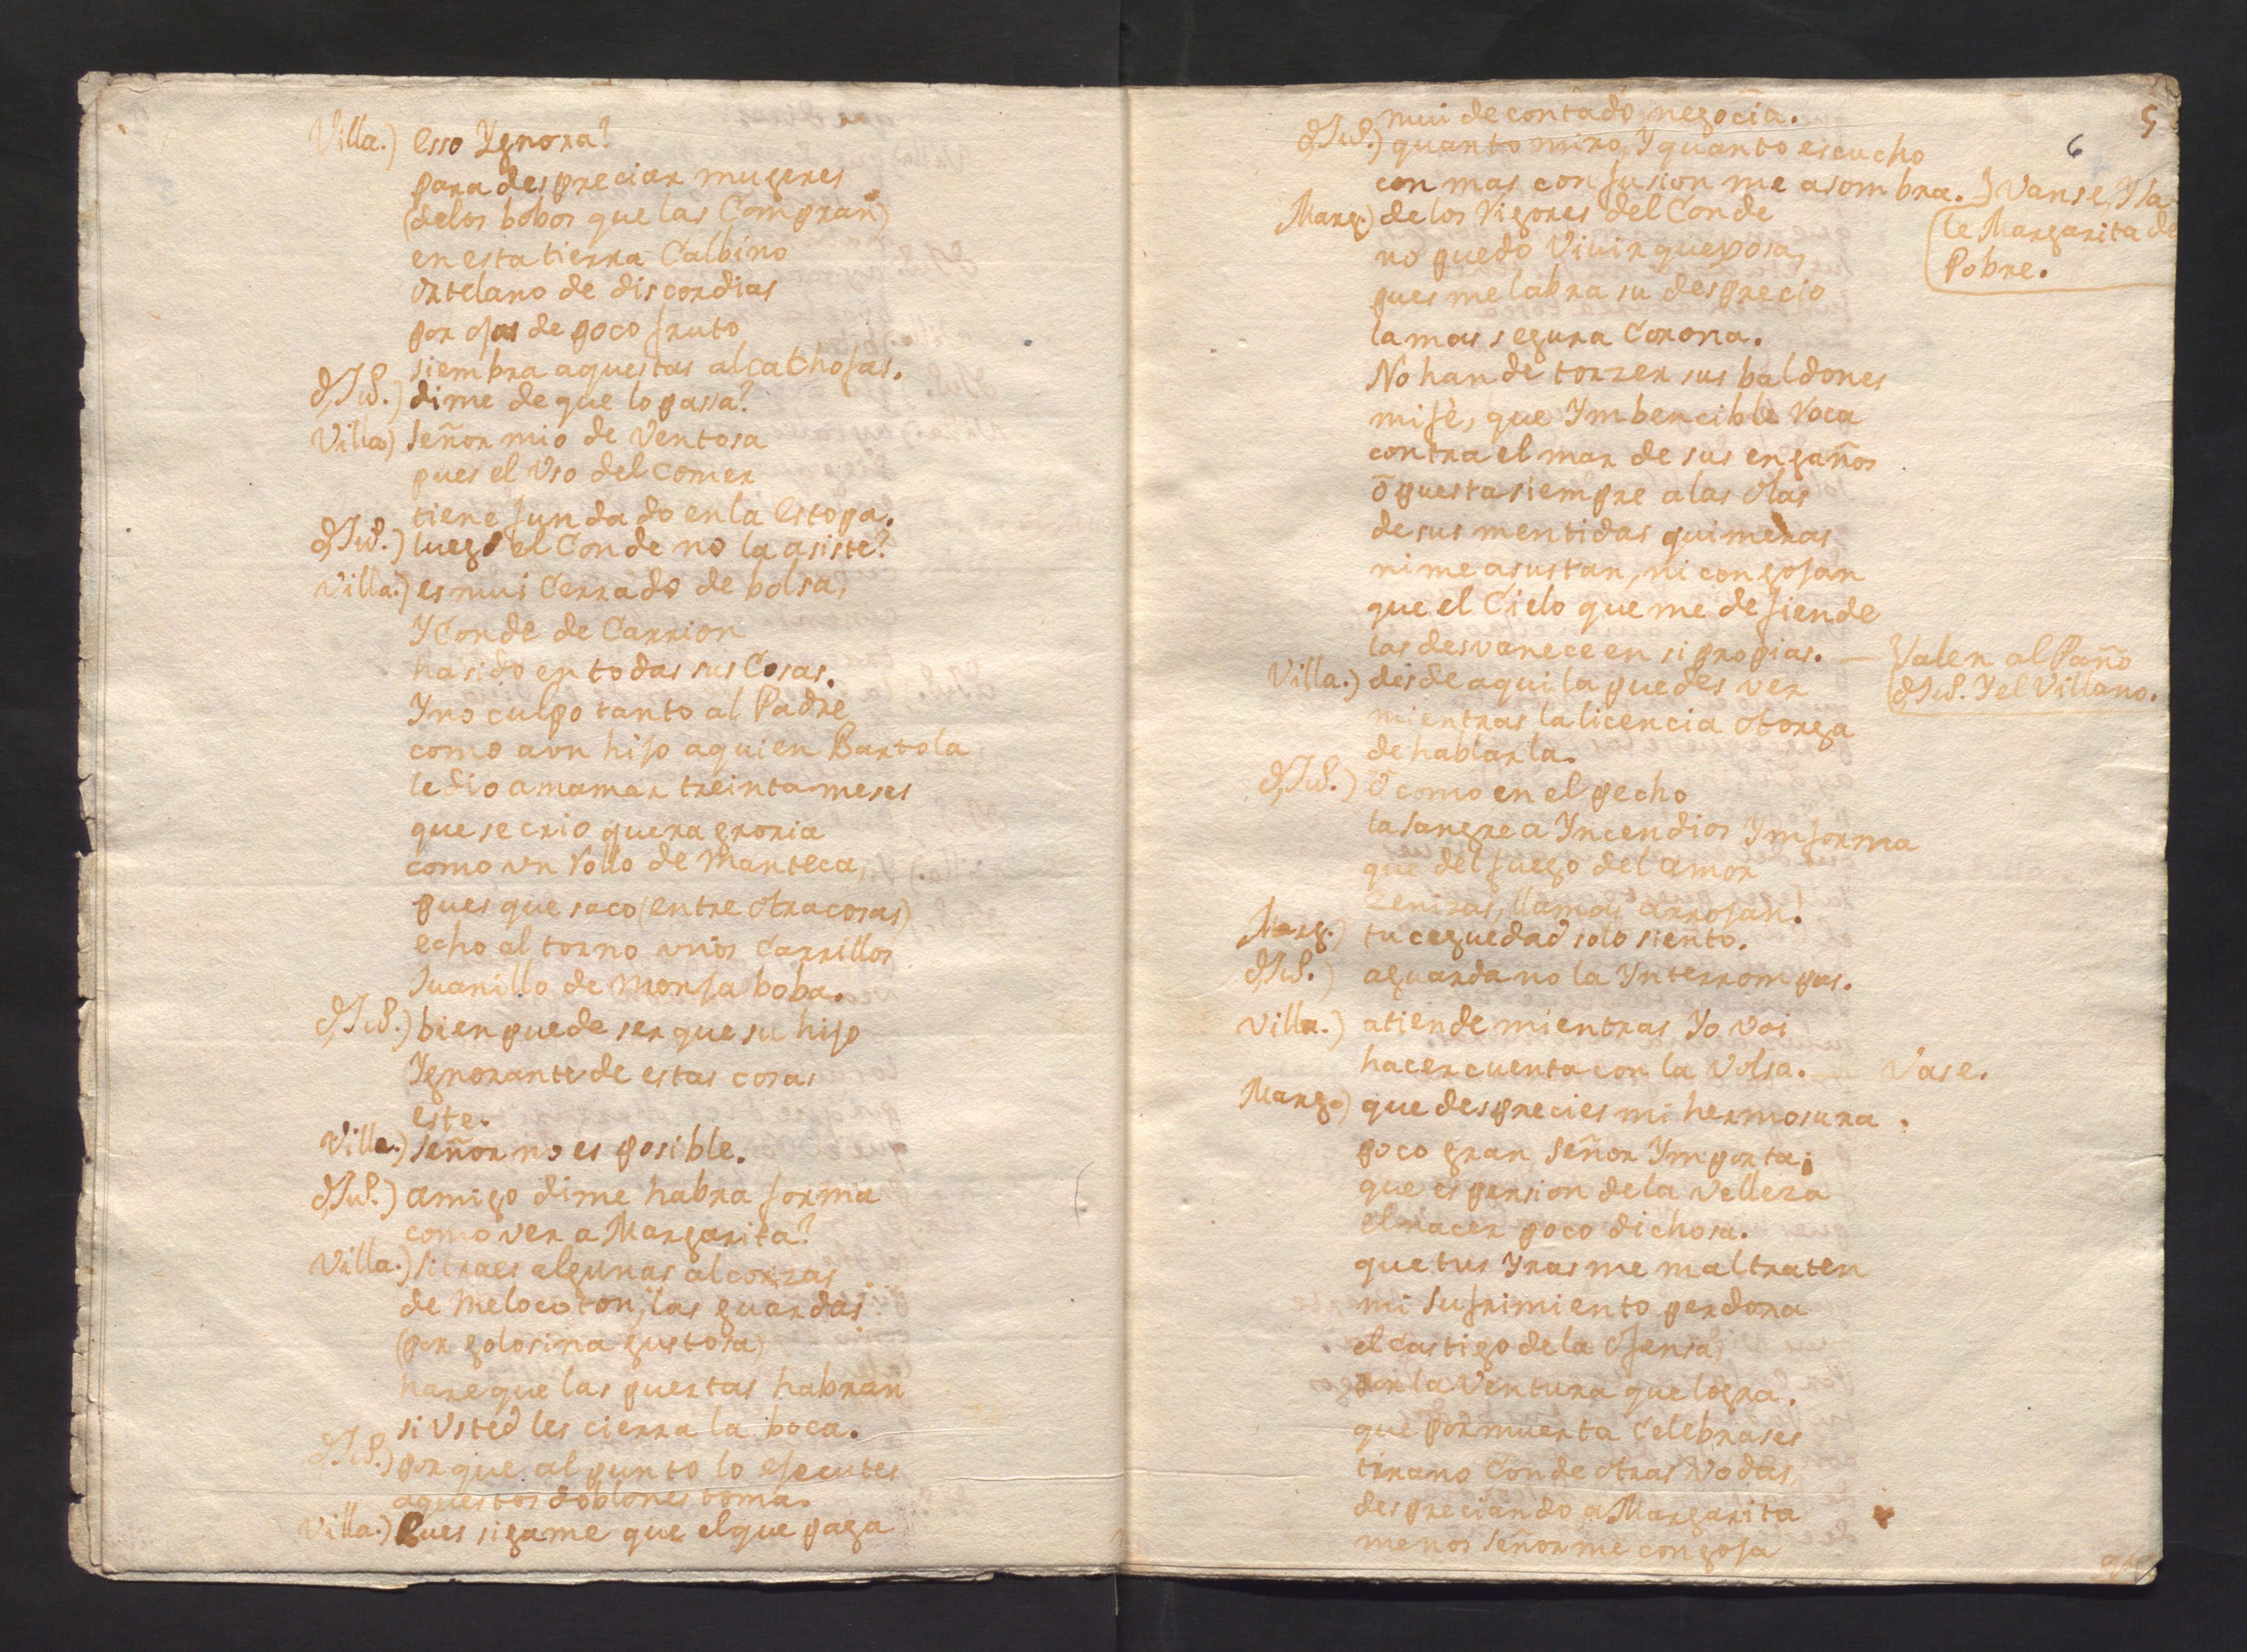 Villa.) esso Ygnora?
para despreciar mugeres
(delos bobos que las Compran)
en esta tierra Calbino
ortelano de discordias
por ojas de poco fruto
siembra aquestas alcachofas.
dJul.) dime de que lo passa?
Villa) señor mio de Ventosa
pues el Vso del comer
tiene fundado en la estopa.
dJul.) luego el Conde no la asiste?
Villa.) es mui Cerrado de bolsa,
Y Conde de Carrion
ha sido en todas sus Cosas.
Y no culpo tanto al Padre
como a vn hijo aquien Bartola
le dio a mamar treinta meses
que se crio quera groria
como vn rollo de Manteca,
pues que saco (entre otra cosas)
echo al torno vnos Carrillos
Juanillo de Monja boba.
dJul.) bien puede ser que su hijo
Ygnorante de estas cosas
este.
Villa.) señor no es posible.
dJul.) amigo dime habra forma
como ver a Margarita?
Villa.) si traes algunas alcorzas
de Melocoton, las guardas
(por golosina gustosa)
hare que las puertas habran
si Vsted les cierra la boca.
dJul.) por que al punto lo ejecutes
aquestos doblones toma.
Villa.) Pues sigame que el que paga
5
6
mui de contado negocia.
dJul.) quanto miro, Y quanto escucho
con mas confusion me asombra. } Vanse, Y sa
le Margarita de
Pobre.
Marg.) de los Rigores del Conde
no puedo Viuir quexosa,
pues me labra su desprecio
la mas segura Corona.
No han de torzer sus baldones
mi fè, que Ymbencible Roca
contra el mar de sus engaños
opuesta siempre a las olas
de sus mentidas quimeras
ni me asustan, ni congojan
que el Cielo que me defiende
las desvanece en si propias. — Salen al Paño
dJul. Y el Villano.
Villa.) desde aqui la puedes ver
mientras la licencia otorga
de hablarla.
dJul.) o como en el pecho
la sangre a Yncendios Ymforma
que del fuego del amor
zenizas, llamas arrojan!
Marg.) tu ceguedad solo siento.
dJul.) aguarda no la Ynterrompas.
Villa.) atiende mientras Yo voi
hacer cuenta con la Volsa. — Vase.
Marg.) que desprecies mi hermosura
poco gran señor Ymporta;
que es pension de la velleza
el nacer poco dichosa.
que tus Yras me maltraten
mi sufrimiento perdona
el castigo de la Ofensa
por la Ventura que logra.
que por muerta Celebrases
tirano Conde otras Vodas
despreciando a Margarita
menos señor me congoja